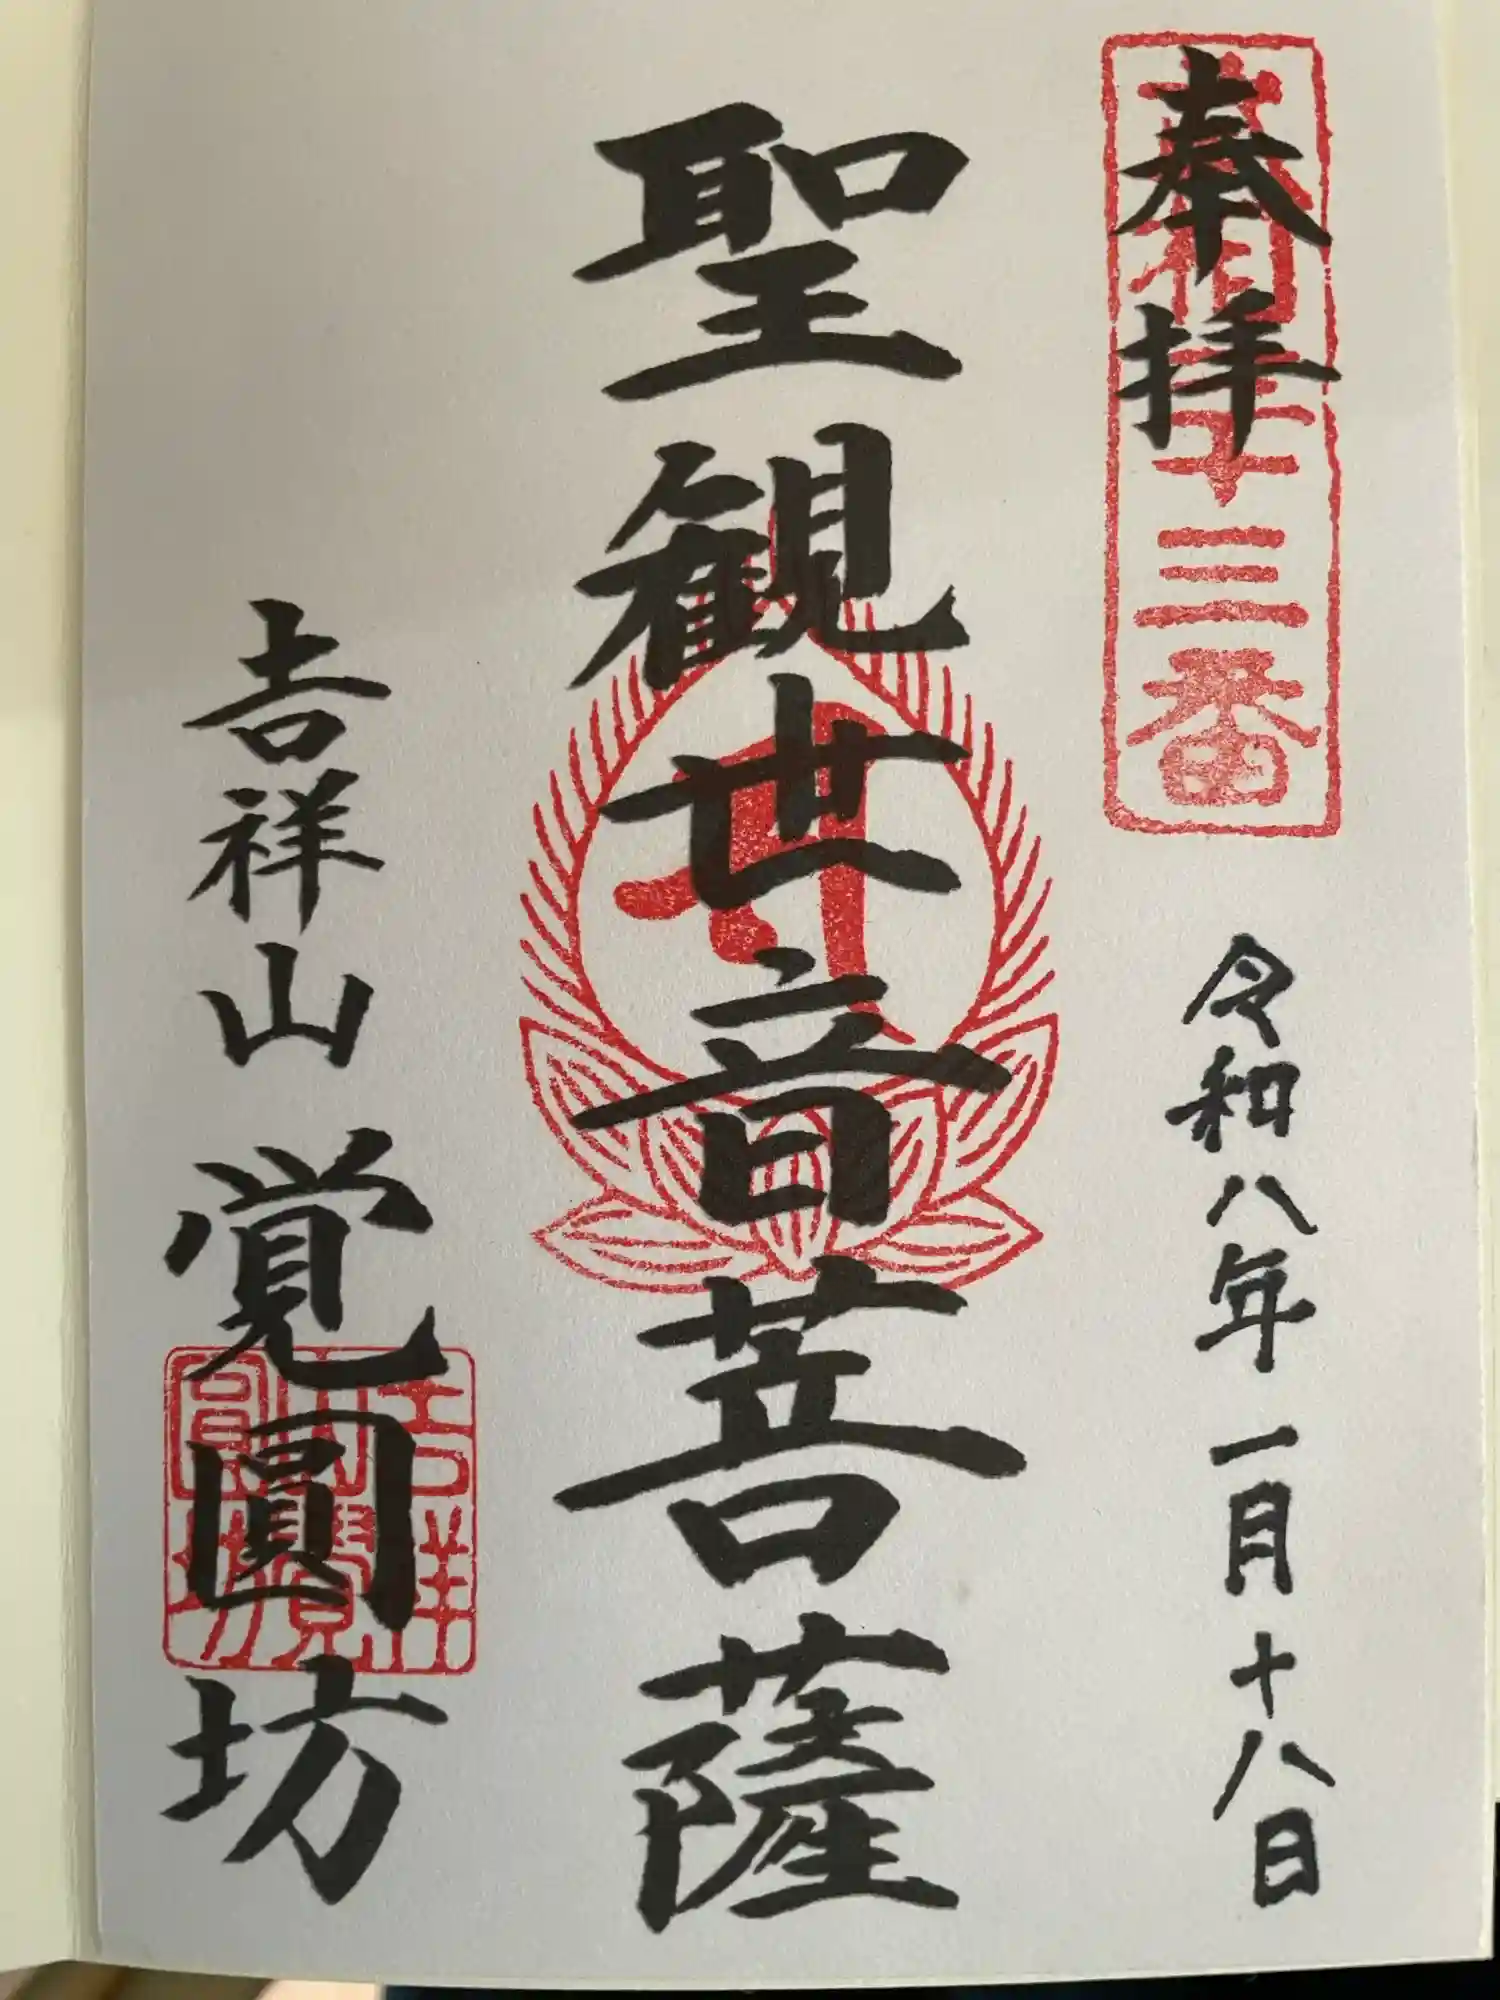 奉拝
十三番
令和八年一月十八日
聖観世音菩薩
吉祥山
覚圓坊
吉祥
山覺
圓坊